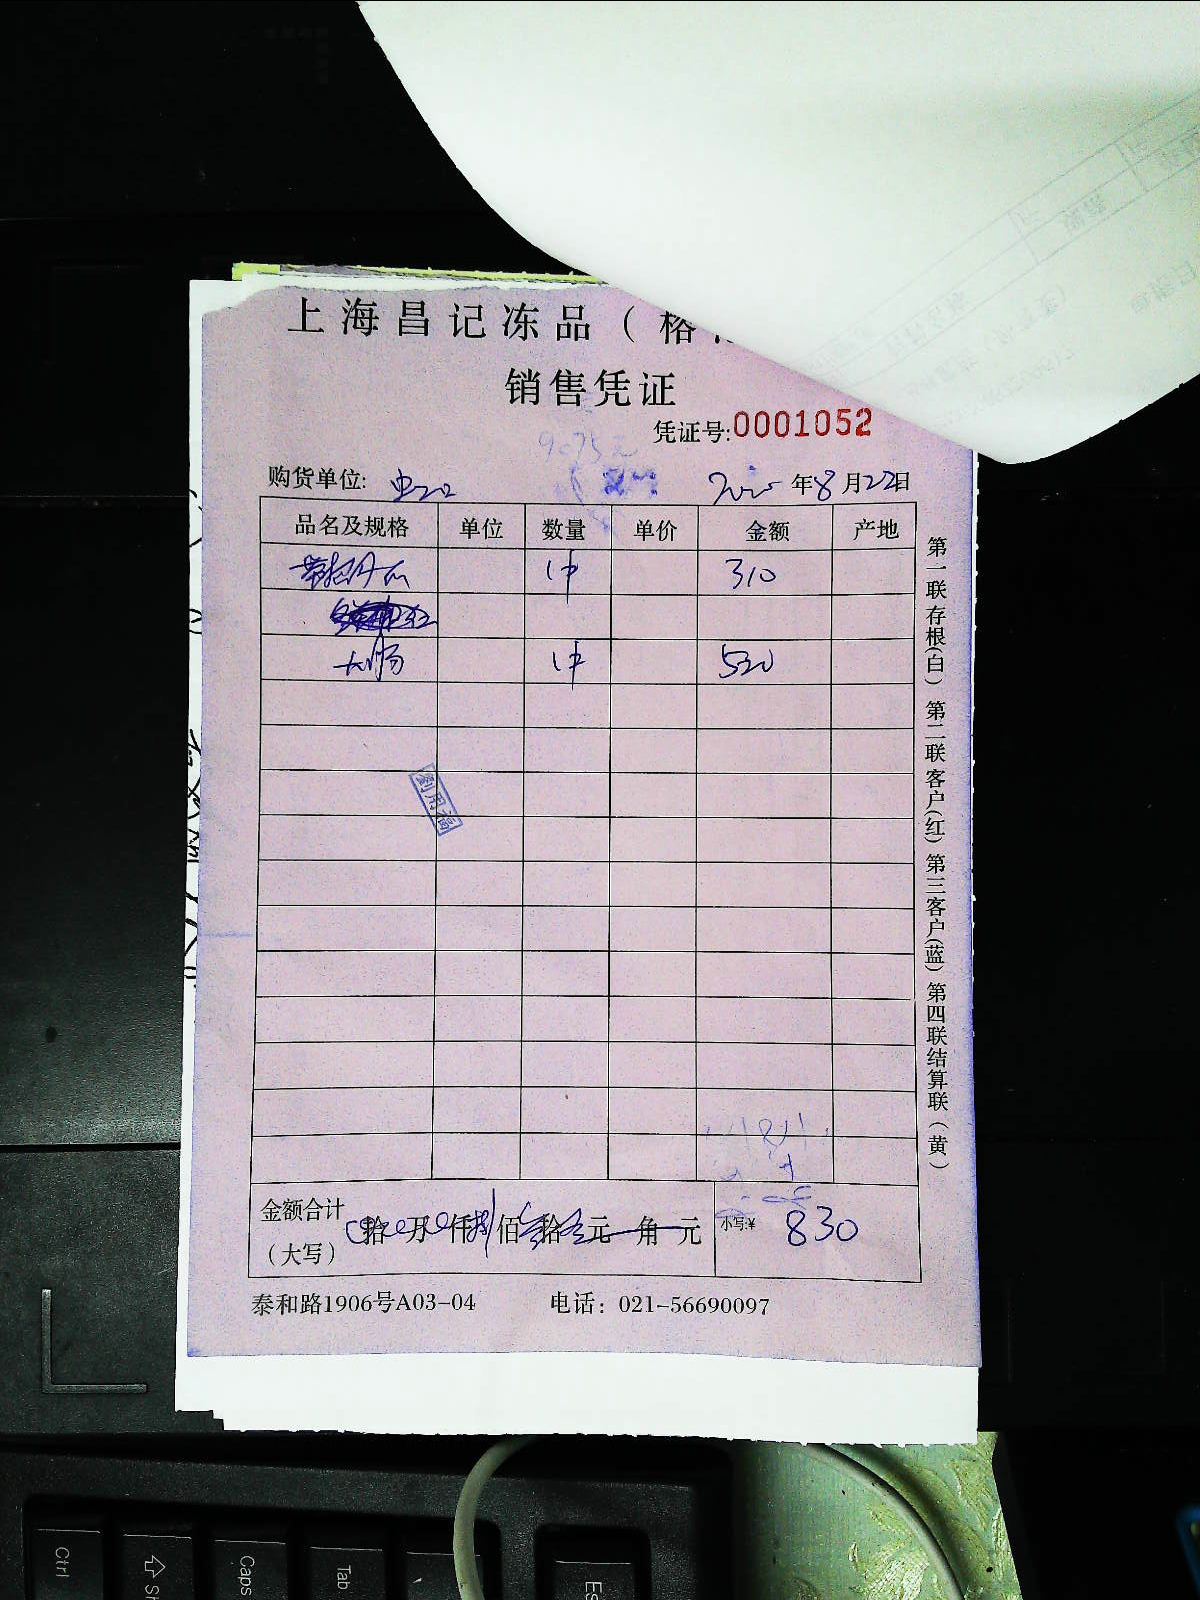 上海昌记冻品（格
销售凭证
凭证号:0001052
购货单位: 年8月22日
品名及规格 单位 数量 单价 金额 产地
1件 310
大肠 1件 520
劉用福
金额合计（大写） 拾 万 仟捌佰叁拾 元 角 元 小写:¥ 830
泰和路1906号A03-04 电话：021-56690097
第一联存根(白) 第二联客户(红) 第三客户(蓝) 第四联结算联(黄)
Ctrl
Caps
Tab